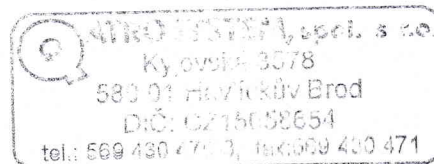 spol. s r.o.
Kyjovská 3578
580 01 Havlíčkův Brod
DIČ: CZ15058654
tel.: 569 430 fax:569 430 471